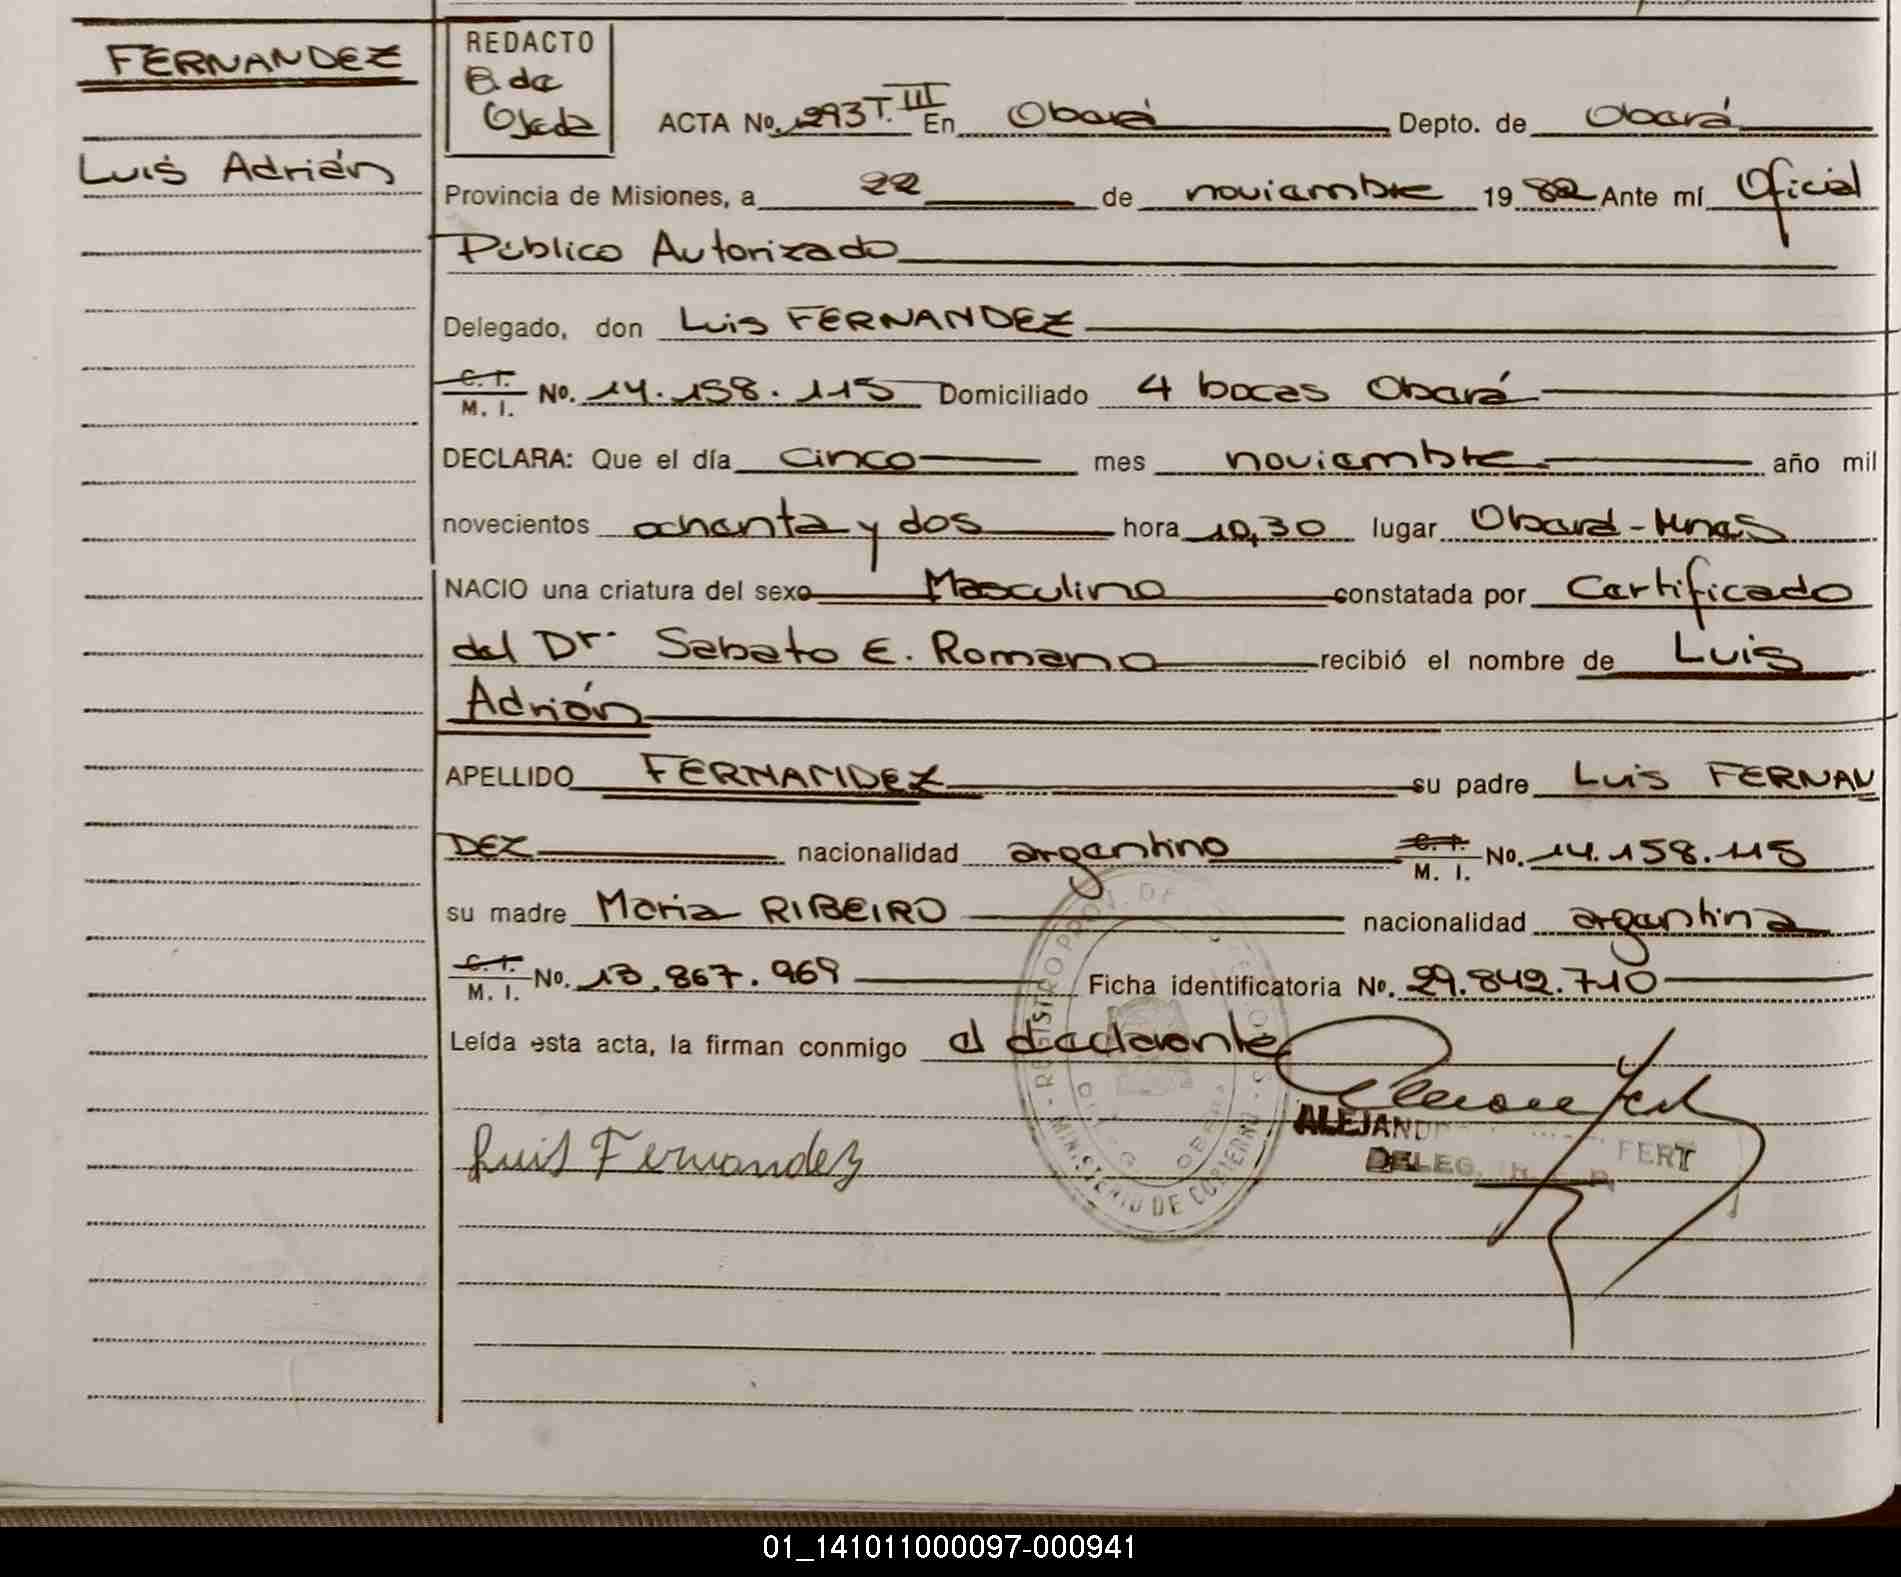 FERNANDEZ
Luis Adrián
REDACTO
B. de
Ojeda
ACTA No. 293 T. III En Oberá Depto. de Oberá
Provincia de Misiones, a 22 de noviembre 19 82 Ante mí Oficial
Público Autorizado
Delegado, don Luis FERNANDEZ
C. I.
M. I. No. 14.158.115 Domiciliado 4 bocas Oberá
DECLARA: Que el día cinco mes noviembre año mil
novecientos ochenta y dos hora 10,30 lugar Oberá - Mnes
NACIO una criatura del sexo Masculino constatada por Certificado
del Dr. Sabato E. Romano recibió el nombre de Luis
Adrián
APELLIDO FERNANDEZ su padre Luis FERNAN
DEZ nacionalidad argentino C. I. M. I. No. 14.158.115
su madre Maria RIBEIRO nacionalidad argentina
C. I.
M. I. No. 13.867.969 Ficha identificatoria No. 29.842.710
Leída esta acta, la firman conmigo el declarante
Luis Fernandez
ALEJAND FERT
DELEG.
REGISTRO PROV. DE
MINISTERIO DE GOBIERNO
OBERA
01_141011000097-000941